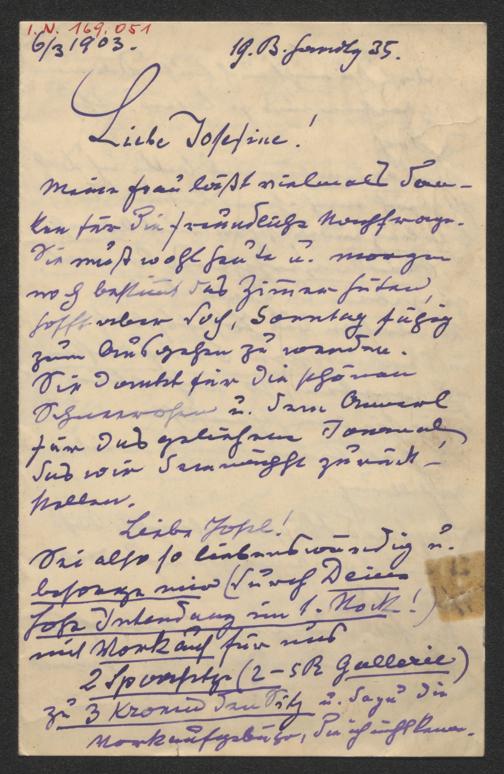 I.N. 169.051
6/3 1903. 19. B. Handlg 35.
Liebe Josefine!
Meine Frau läßt vielmals dan-
ken für die freundliche Nachfrage.
Sie muß wohl heute u. morgen
noch bestimmt das Zimmer hüten,
hofft aber doch, Sonntag fähig
zum Ausgehen zu werden.
Sie dankt für die schönen
Schneerosen u. dem
für das geliehene Journal
das wir demnächst zurück-
stellen.
Liebe Josef!
Sei also so liebenswürdig u.
besorge mir (durch Deine
hohe Intendanz im 1. Stock!)
mit Vorkauf für uns
2 Sperrsitze (2-5R Gallerie)
zu 3 Kronen den Sitz u. dazu die
Vorkaufsgebühr, die ich nicht kenne.